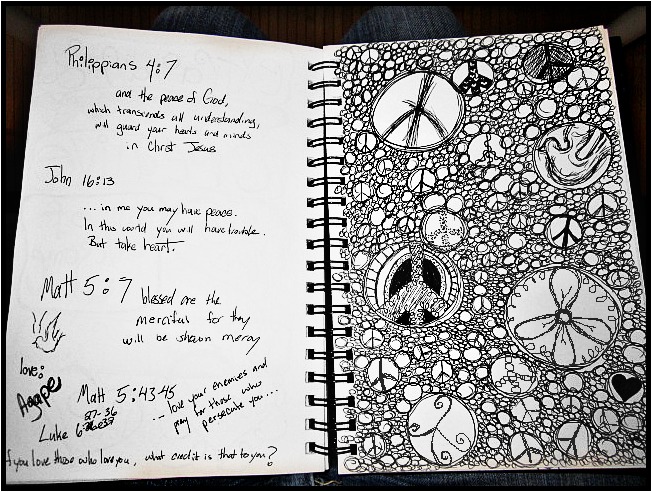 Philippians 4:7
and the peace of God,
which transcends all understanding,
will guard your hearts and minds
in Christ Jesus
John 16:13
...in me you may have peace.
In this world you will have trouble.
But take heart.
Matt 5:7
blessed are the
merciful for they
will be shown mercy
love:
Agape
Matt 5:43-45
...love your enemies and
pray for those who
persecute you...
27-36
Luke 6:
if you love those who love you, what credit is that to you?